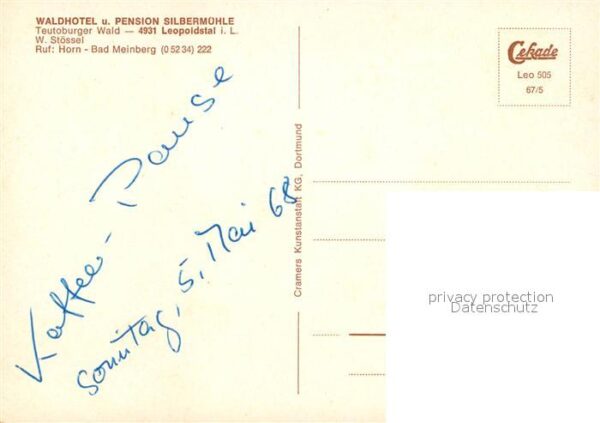 WALDHOTEL u. PENSION SILBERMÜHLE
Teutoburger Wald — 4931 Leopoldstal i. L.
W. Stössel
Ruf: Horn - Bad Meinberg (0 52 34) 222
Cekade
Leo 505
67/5
Kaffee-Pause
Sonntag, 5. Mai 68
Cramers Kunstanstalt KG, Dortmund
privacy protection
Datenschutz